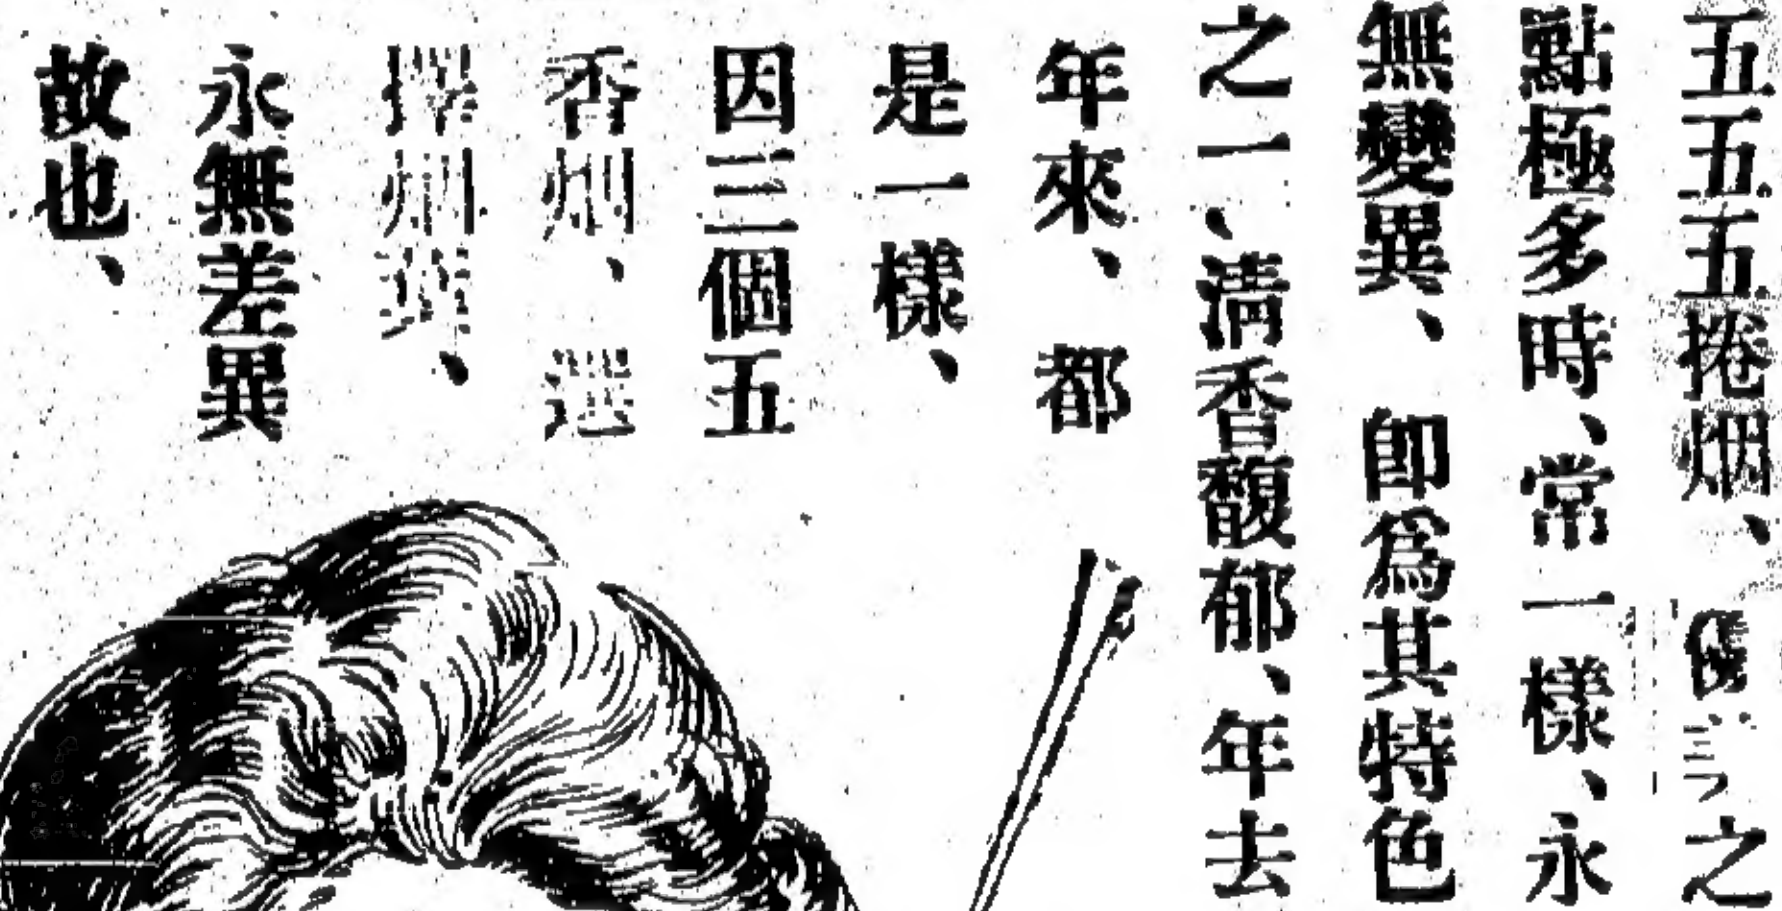 五五五捲烟、優之
點極多時、常一樣、永
無變異、即爲其特色
之一、淸香馥郁、年去
年來、都
是一樣、
因三個五
香烟、選
擇烟、
永無差異
故也、